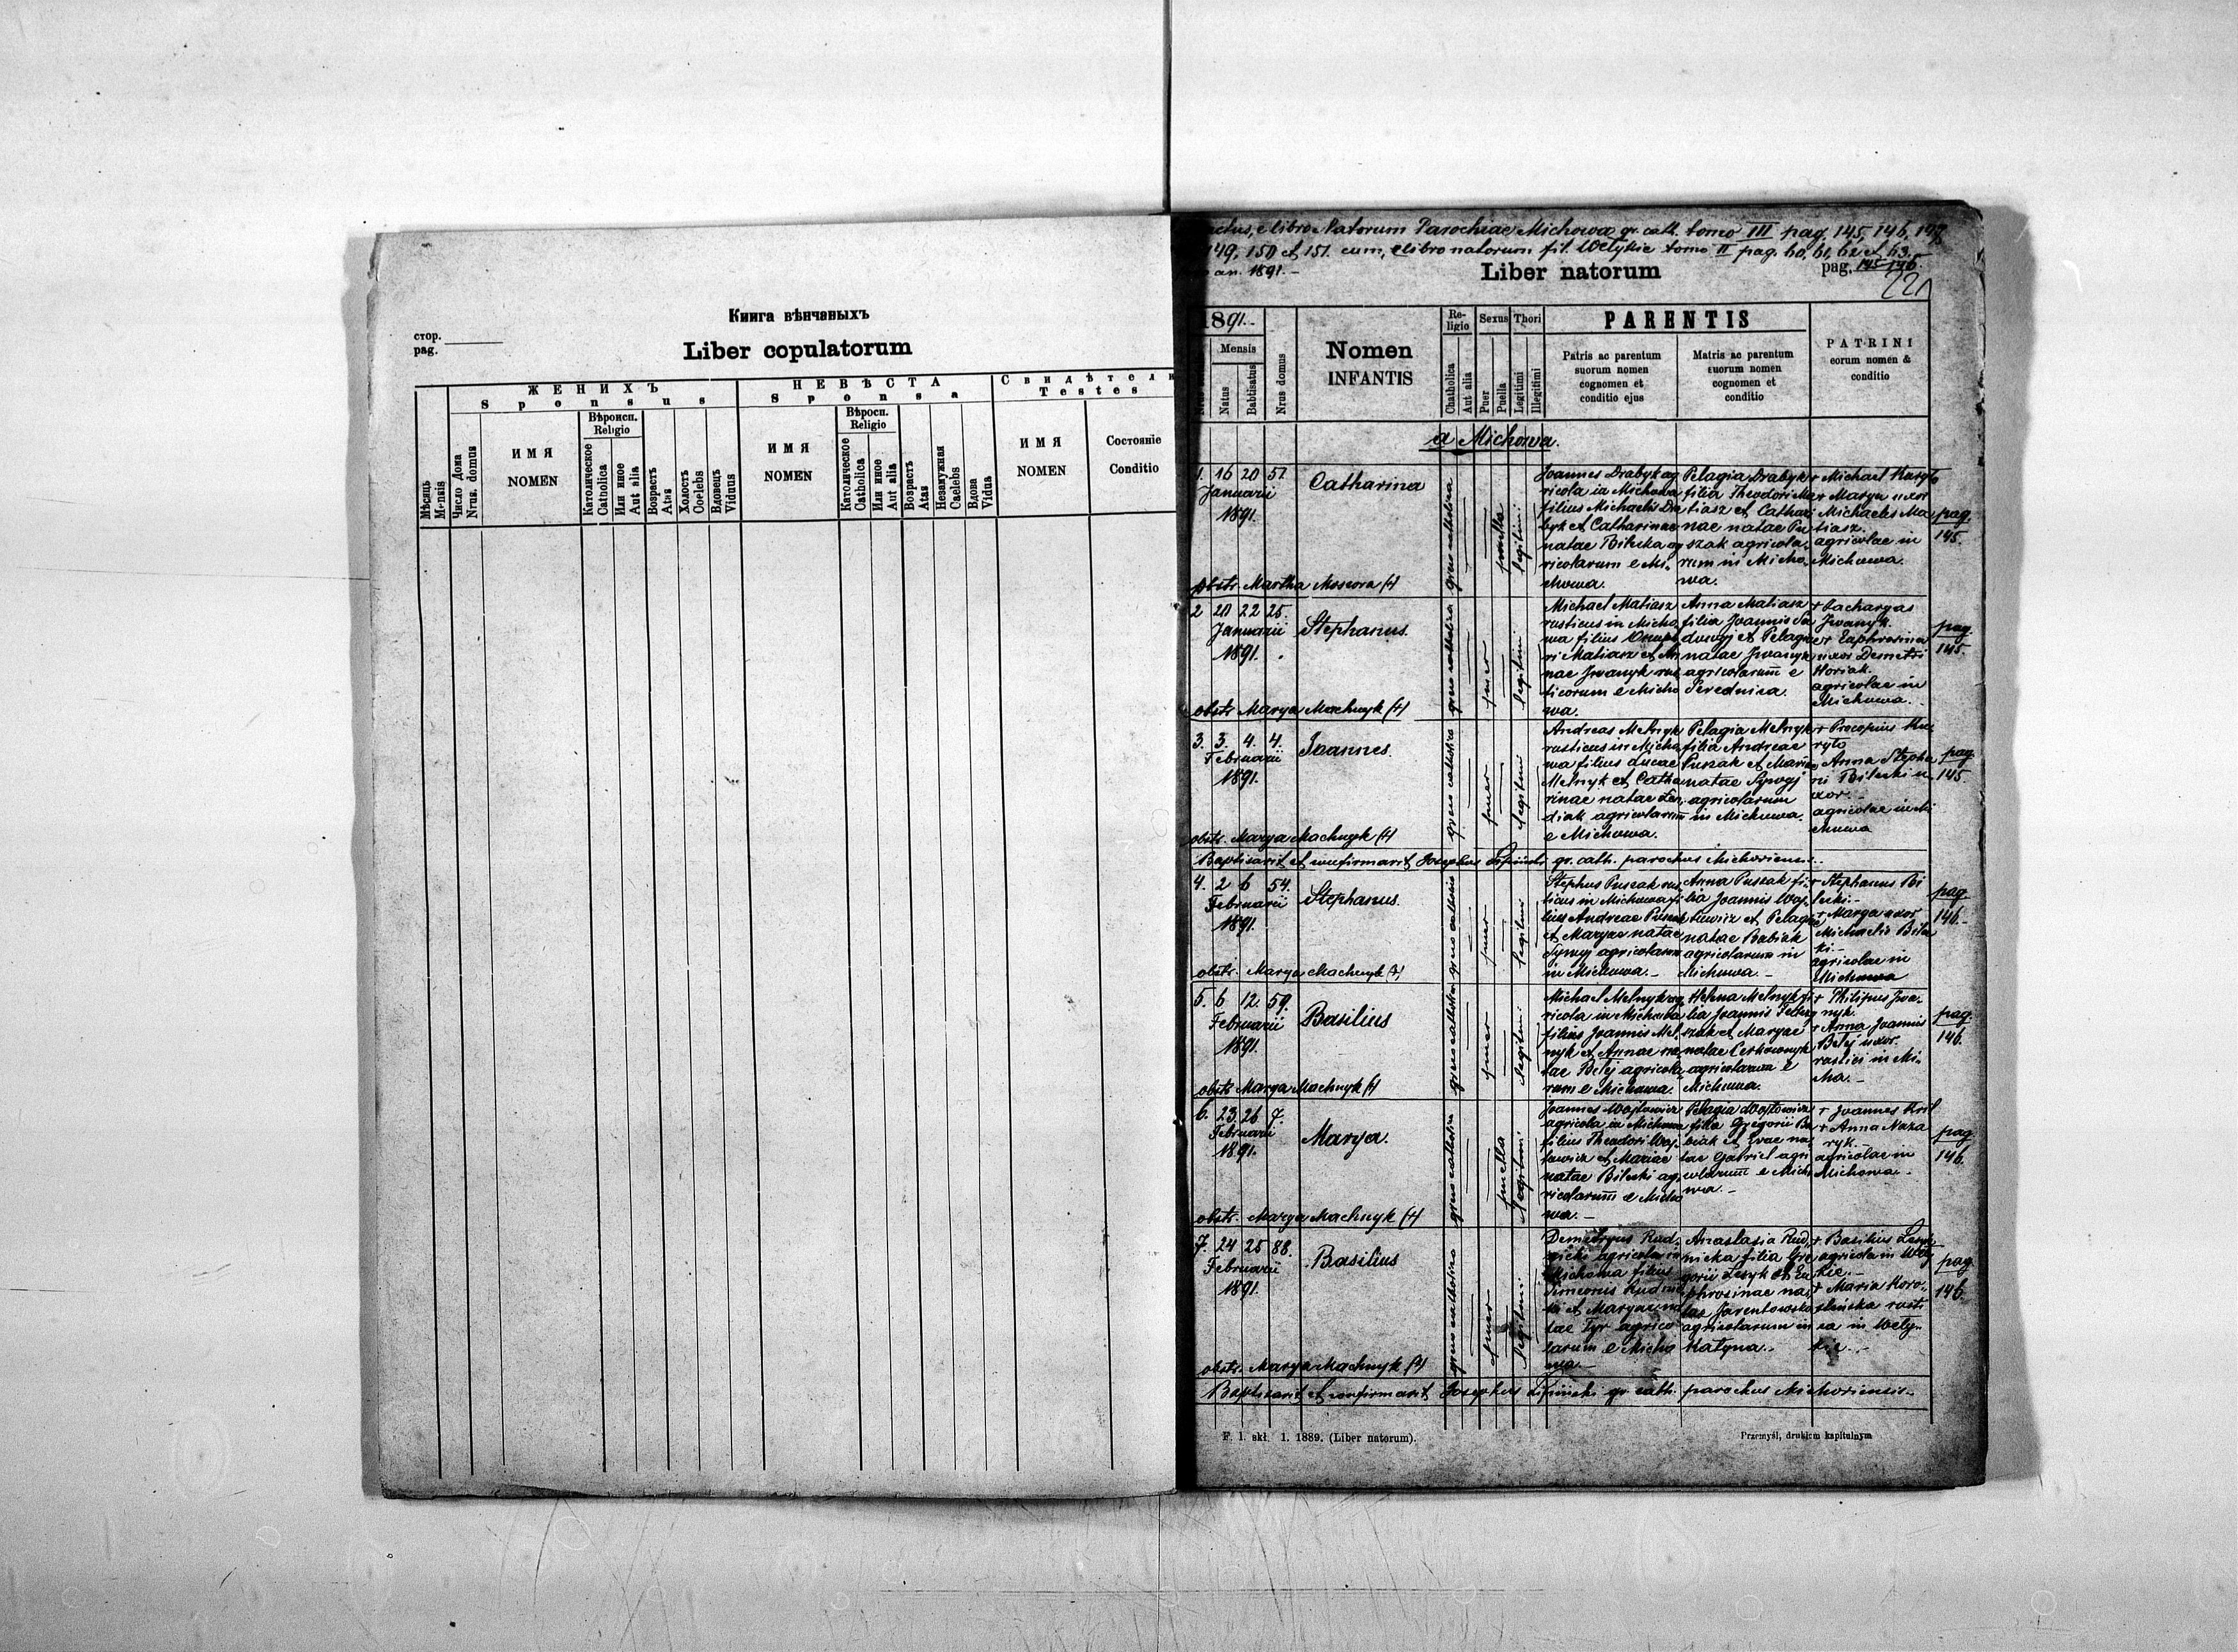 Книга вѣнчаныхъ
стор.
pag.
Liber copulatorum
ЖЕНИХЪ
Sponsus
НЕВѢСТА
Sponsa
Свидѣтели
Testes
Мѣсяць
Mensis
Число Дома
Nrus. domus
ИМЯ
NOMEN
Вѣроисп.
Religio
Католическое
Catholica
Или иное
Aut alia
Возрастъ
Atas
Холостъ
Coelebs
Вдовецъ
Viduus
ИМЯ
NOMEN
Вѣросп.
Religio
Католическое
Catholica
Или иное
Aut alia
Возрастъ
Atas
Незамужная
Caelebs
Вдова
Vidua
ИМЯ
NOMEN
Состояніе
Conditio
e libro Natorum Parochiae Michowa gr. cath. tomo III pag. 145, 146,
149, 150 et 151. cum, e libro natorum fil. Wetykie tomo II pag. 60, 61, 62 et 63.
an. 1891.-
Liber natorum
pag. 145 146.
221
1891.
Mensis
Natus
Babtisatus
Nrus domus
Nomen
INFANTIS
Religio
Chatholica
Aut alia
Sexus
Puer
Puella
Thori
Legitimi
Illegitimi
PARENTIS
Patris ac parentum
suorum nomen
cognomen et
conditio ejus
Matris ac parentum
suorum nomen
cognomen et
conditio
PATRINI
eorum nomen &
conditio
a Michowa.
1. 16 20 57.
Januarii
1891.
Catharina
graeco catholica
puella
legitimi
Joannes Drabyk ag
ricola in Michowa
filius Michaelis Dra
byk et Catharinae
natae Bilecka ag
ricolarum e Mi-
chowa.
Pelagia Drabyk
filia Theodori Ma
tiasz et Cathari
nae natae Pu
szak agricola-
rum in Micho
wa.
+ Marya uxor
Michaelis Ma
tiasz.
agricolae in
Michowa.
pag.
145.
obstr. Martha (+)
2 20 22 25.
Januarii
1891.
Stephanus.
graeco catholica
puer
legitimi
Michael Matiasz
rusticus in Micho
wa filius
ri Matiasz et An
nae Jwanyk rus
ticorum e Micho
wa.
Anna Matiasz
filia Joannis
et Pelagiae
natae Jwanyk
agricolarum e
Serednica.
+ Zacharyas
Jwanyk.
+ Euphrosina
uxor Demetri
Horiak.
agricolae in
Michowa.
pag.
145.
obstr. Marya Machnyk (+)
3. 3. 4. 4.
Februarii
1891.
Joannes.
graeco catholica
puer
legitimi
Andreas Melnyk
rusticus in Micho
wa filius Lucae
Melnyk et Catha
rinae natae
diak agricolarum
e Michowa.
Pelagia Melnyk
filia Andreae
Puszak et Mariae
natae
agricolarum
in Michowa.
+ Procopius
+ Anna Stepha
ni Bilecki u-
xor.
agricolae in Mi
chowa
pag.
145.
obstr. Marya Machnyk (+)
Baptisavit et confirmavit Josephus Lipiński gr. cath. parochus Michoviensis.
4. 2 6 54.
Februarii
1891.
Stephanus.
graeco catholica
puer
legitimi
Stephus Puszak rus
ticus in Michowa fi
lius Andreae Puszak
et Maryae natae
agricolarum
in Michowa.-
Anna Puszak fi-
lia Joannis Woj
towicz et Pelagiae
natae Babiak
agricolarum in
Michowa.-
+ Stephanus Bi
lecki.-
+ Marya uxor
Michaelis Bilec
ki.-
agricolae in
Michowa
pag.
146.-
obstr. Marya Machnyk (+)
5. 6 12. 59.
Februarii
1891.
Basilius
graeco catholica
puer
legitimi
Michael Melnyk ag
ricola in Michowa
filius Joannis Mel
nyk et Annae na
tae Betej agricola
rum e Michowa.
Helena Melnyk fi
lia Joannis
et Maryae
natae Cerkownyk
agricolarum e
Michowa.
+ Philipus Jwa-
nyk.
+ Anna Joannis
Betej uxor.
rustici in Mi-
cho.-
pag.
146.
obstr. Marya Machnyk (+)
6. 23. 26 7.
Februarii
1891.
Marya.
graeco catholica
puella
legitimi
Joannes Wojtowicz
agricola in Michowa
filius Theodori Woj-
towicz et Mariae
natae Bilecki ag-
ricolarum e Micho
wa.-
Pelagia Wojtowicz
filia Gregorii Ba
biak et Evae na
tae Gabriel agri
colarum e Micho
wa.-
+ Joannes Kril
+ Anna Naza
ryk.-
agricolae in
Michowa.-
pag.
146.
obstr. Marya Machnyk (+)
7. 24 25 88.
Februarii
1891.
Basilius
graeco catholica
puer
legitimi
Demetryus Rud-
nicki agricola in
Michowa filius
Simeonis Rudnic
ki et Maryae na
tae Tyr agrico
larum e Micho
wa.-
Anastasia Rud-
nicka filia Gre
gorii Lesyk et Eu
phrosinae na
tae Jarentowska
agricolarum in
Katyna.-
+ Basilius Lesyk
agricola in Wety
kie.-
+ Maria Koro-
steńska rusti
ca in Wety-
kie.-
pag.
146.
obstr. Marya Machnyk (+)
Baptisavit et confirmavit Josephus Lipiński gr. cath. parochus Michoviensis.-
F. 1. skł. 1. 1889. (Liber natorum).
Przemyśl, drukiem kapitulnym